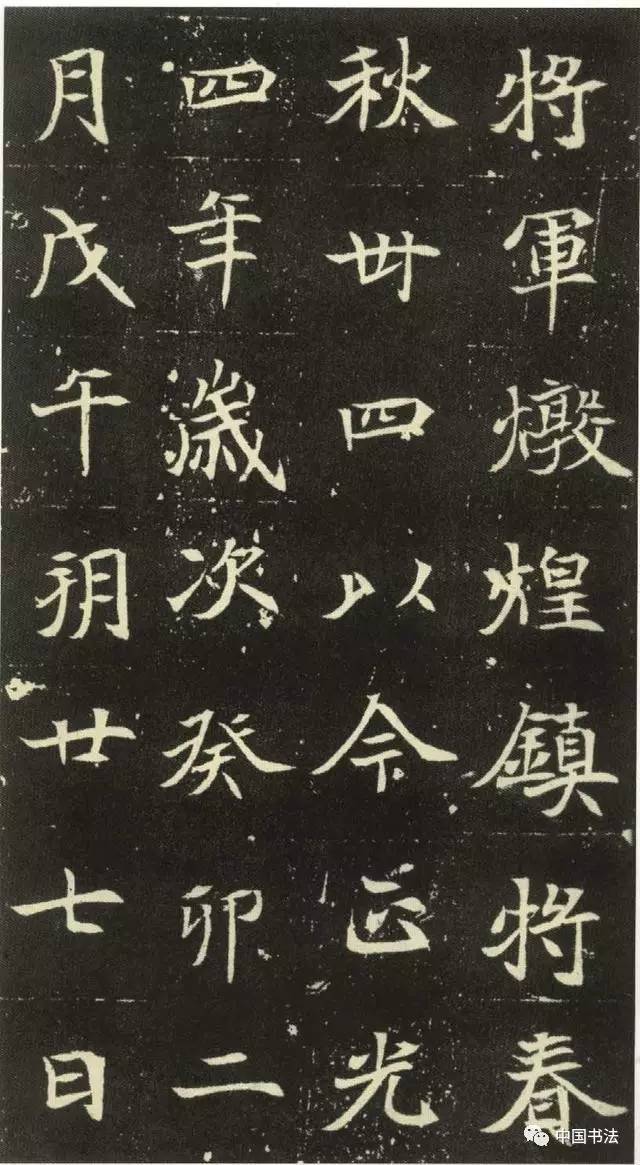 將軍燉煌鎮將春
秋卅四以令正光
四年歲次癸卯二
月戊午朔廿七日
中国书法